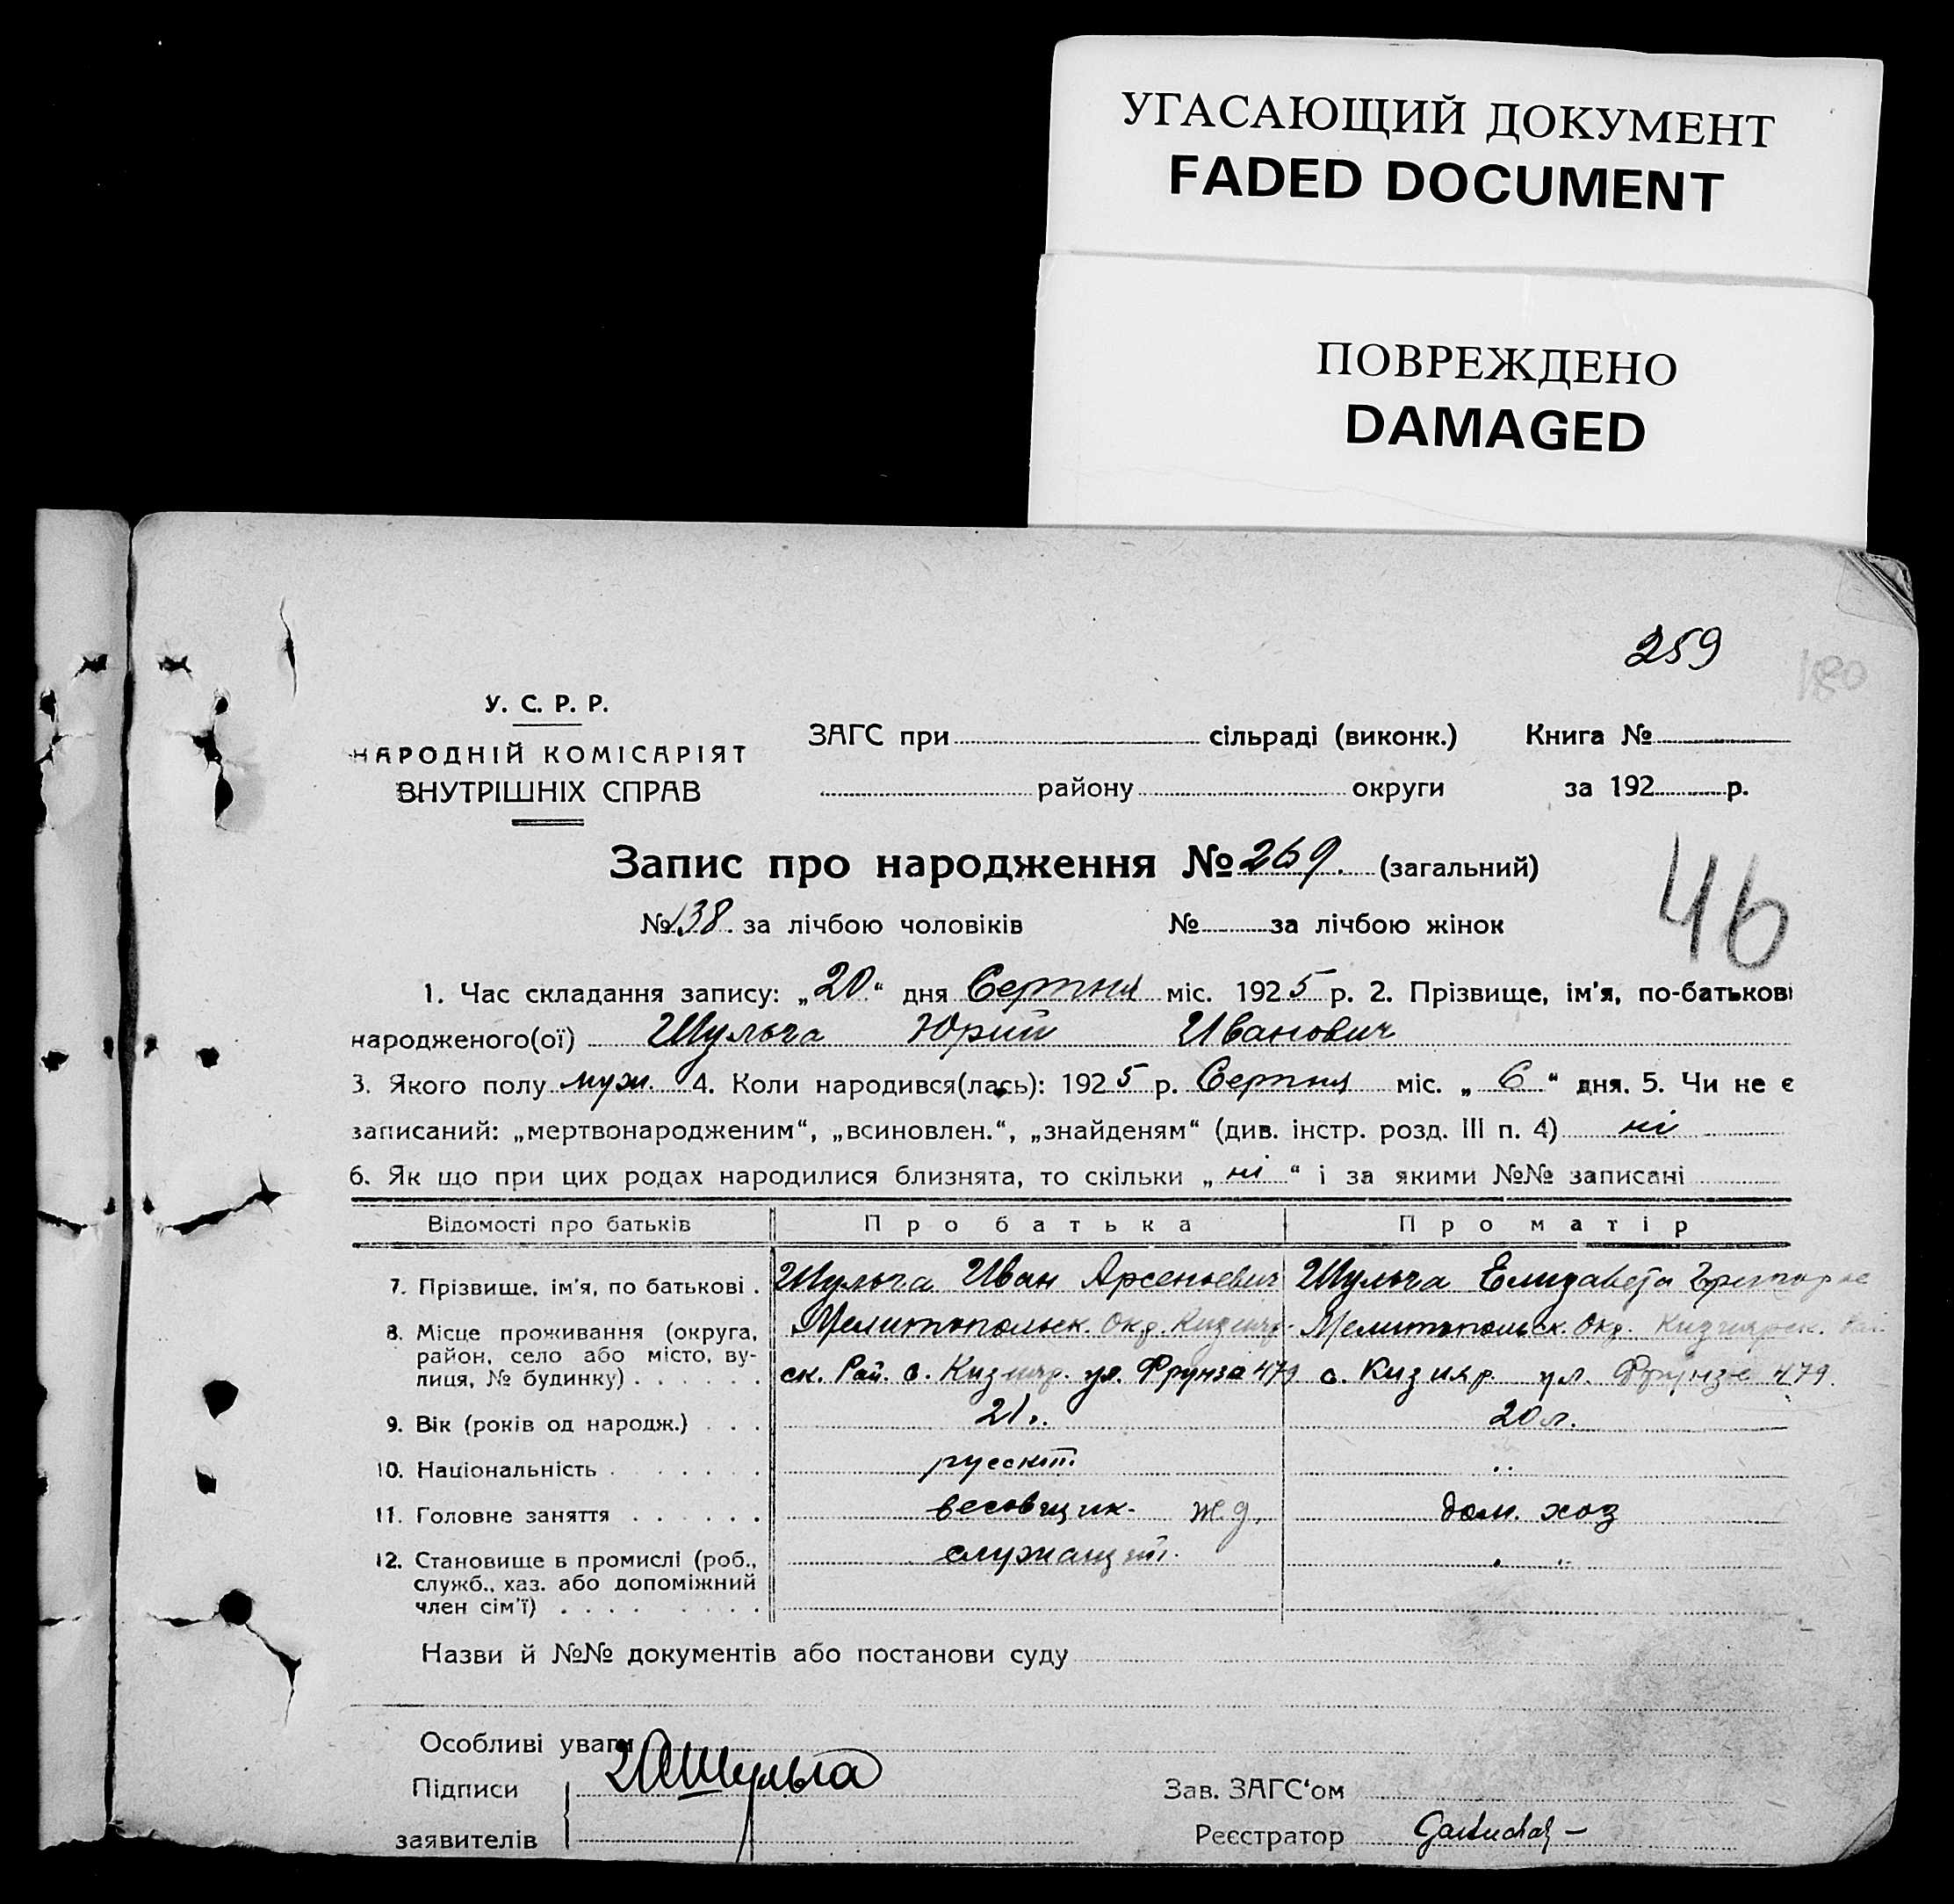 УГАСАЮЩИЙ ДОКУМЕНТ
FADED DOCUMENT
ПОВРЕЖДЕНО
DAMAGED
259
180
У. С. Р. Р.
НАРОДНІЙ КОМІСАРІЯТ
ВНУТРІШНІХ СПРАВ
ЗАГС при сільраді (виконк.) Книга №
району округи за 192 р.
Запис про народження № 259. (загальний)
№ 138 за лічбою чоловіків № за лічбою жінок
46
1. Час складання запису: „20“ дня Серпня міс. 1925 р. 2. Прізвище, ім'я, по-батькові
народженого(ої) Шульга Юрий Иванович
3. Якого полу муж. 4. Коли народився(лась): 1925 р. Серпня міс. „6“ дня. 5. Чи не є
записаний: „мертвонародженим“, „всиновлен.“, „знайденям“ (див. інстр. розд. III п. 4) ні
6. Як що при цих родах народилися близнята, то скільки „ні“ і за якими №№ записані
Відомості про батьків Про батька Про матір
7. Прізвище, ім'я, по батькові . Шульга Иван Арсеньевич Шульга Елизавета
8. Місце проживання (округа, Мелитопольск. Окр. Кизияр- Мелитопольск. Окр. Кизиярск. Рай.
район, село або місто, ву-
лиця, № будинку) . . . . . . ск. Рай. с. Кизияр. ул. Фрунзе 479 с. Кизияр ул. Фрунзе 479.
9. Вік (років од народж.) . . . 21. 20 л.
10. Національність . . . . . . . русский. "
11. Головне заняття . . . . . . весовщик. ж.д. дом. хоз
12. Становище в промислі (роб., служащий. " "
служб., хаз. або допоміжний
член сім'ї) . . . . . . . . .
Назви й №№ документів або постанови суду
Особливі уваги
Підписи Шульга Зав. ЗАГС'ом
заявителів Реєстратор